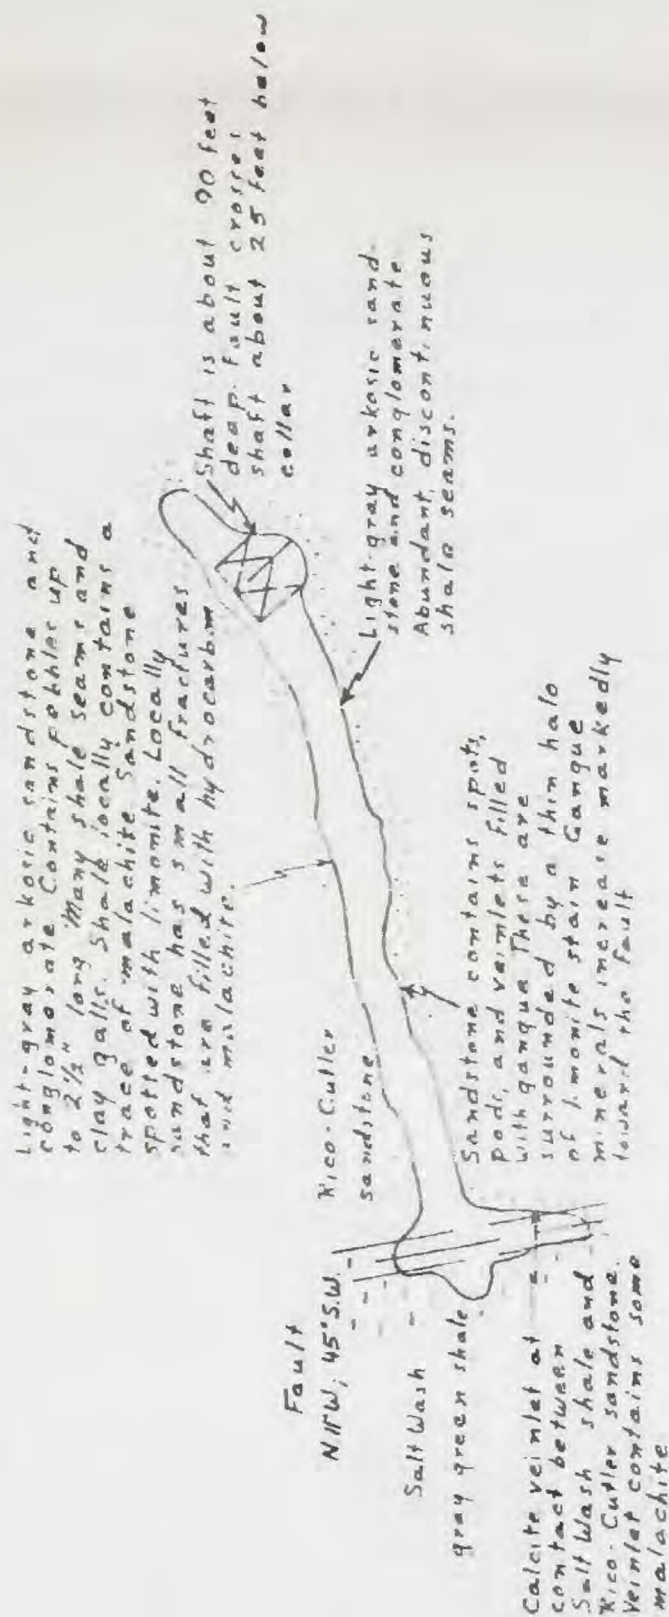 Light-gray arkosic sandstone and
conglomerate Contains pebbles up
to 2½" long Many shale seams and
clay galls. Shale locally contains a
trace of malachite Sandstone
spotted with limonite. Locally
sandstone has small fractures
that are filled with hydrocarbon
and malachite.
Shaft is about 90 feet
deep. Fault crosses
shaft about 25 feet below
collar
Light-gray arkosic sand-
stone and conglomerate
Abundant, discontinuous
shale seams.
Rico-Cutler
sandstone
Sandstone contains spots,
pods, and veinlets filled
with gangue These are
surrounded by a thin halo
of limonite stain Gangue
minerals increase markedly
toward the fault
Fault
45° S.W.
Salt Wash
gray green shale
Calcite veinlet at
contact between
Salt Wash shale and
Rico-Cutler sandstone.
Veinlet contains some
malachite